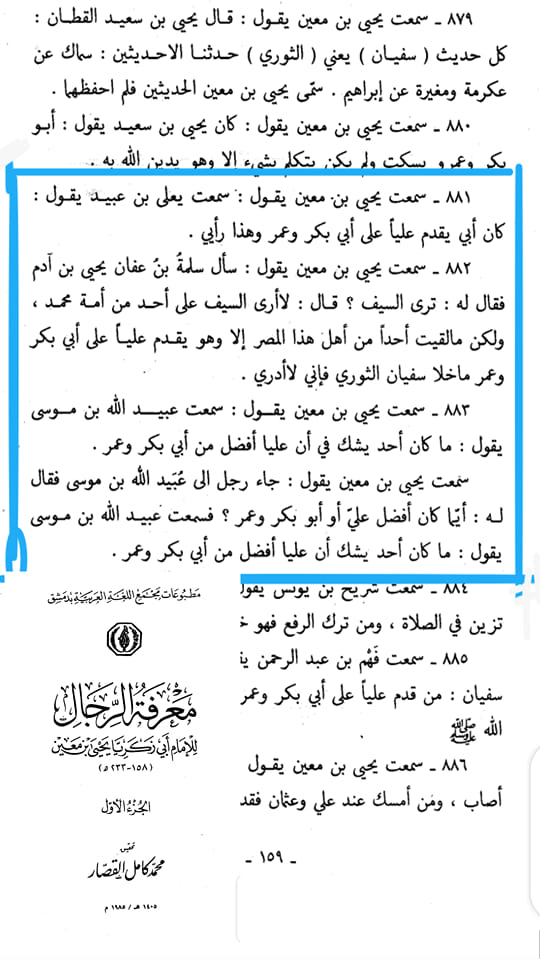 ٨٧٩ ـ سمعت يحيى بن معين يقول : قال يحيى بن سعيد القطان :
كل حديث ( سفيان ) يعني ( الثوري ) حدثنا الاحديثين : سماك عن
عكرمة ومغيرة عن إبراهيم . سمّى يحيى بن معين الحديثين فلم احفظهما .
٨٨٠ ـ سمعت يحيى بن معين يقول : كان يحيى بن سعيد يقول : أبو
بكر وعمر و يسكت ولم يكن يتكلم بشيء إلا وهو يدين الله به .
٨٨١ ـ سمعت يحيى بن معين يقول : سمعت يعلى بن عبيد يقول :
كان أبي يقدم علياً على أبي بكر وعمر وهذا رأيي .
٨٨٢ ـ سمعت يحيى بن معين يقول : سأل سلمةُ بنُ عفان يحيى بن آدم
فقال له : ترى السيف ؟ قال : لاأرى السيف على أحد من أمة محمد ،
ولكن مالقيت أحداً من أهل هذا المصر إلا وهو يقدم علياً على أبي بكر
وعمر ماخلا سفيان الثوري فإني لاأدري .
٨٨٣ ـ سمعت يحيى بن معين يقول : سمعت عبيد الله بن موسى
يقول : ما كان أحد يشك في أن عليا أفضل من أبي بكر وعمر .
سمعت يحيى بن معين يقول : جاء رجل الى عُبَيد الله بن موسى فقال
له : أيّما كان أفضل عليّ أو أبو بكر وعمر ؟ فسمعت عبيد الله بن موسى
يقول : ما كان أحد يشك أن عليا أفضل من أبي بكر وعمر .
٨٨٤ ـ سمعت شريح بن يونس يقول
تزين في الصلاة ، ومن ترك الرفع فهو خ
٨٨٥ ـ سمعت فَهْم بن عبد الرحمن يق
سفيان : من قدم علياً على أبي بكر وعمر
الله ﷺ
٨٨٦ ـ سمعت يحيى بن معين يقول
أصاب ، ومن أمسك عند علي وعثمان فقد
ـ ١٥٩ ـ
مطبوعات مجمع اللغة العربية بدمشق
معرفة الرجال
للإمام أبي زكريا يحيى بن معين
(١٥٨-٢٣٣ هـ)
الجزء الأول
تحقيق
محمد كامل القصار
١٤٠٥ هـ / ١٩٨٥ م